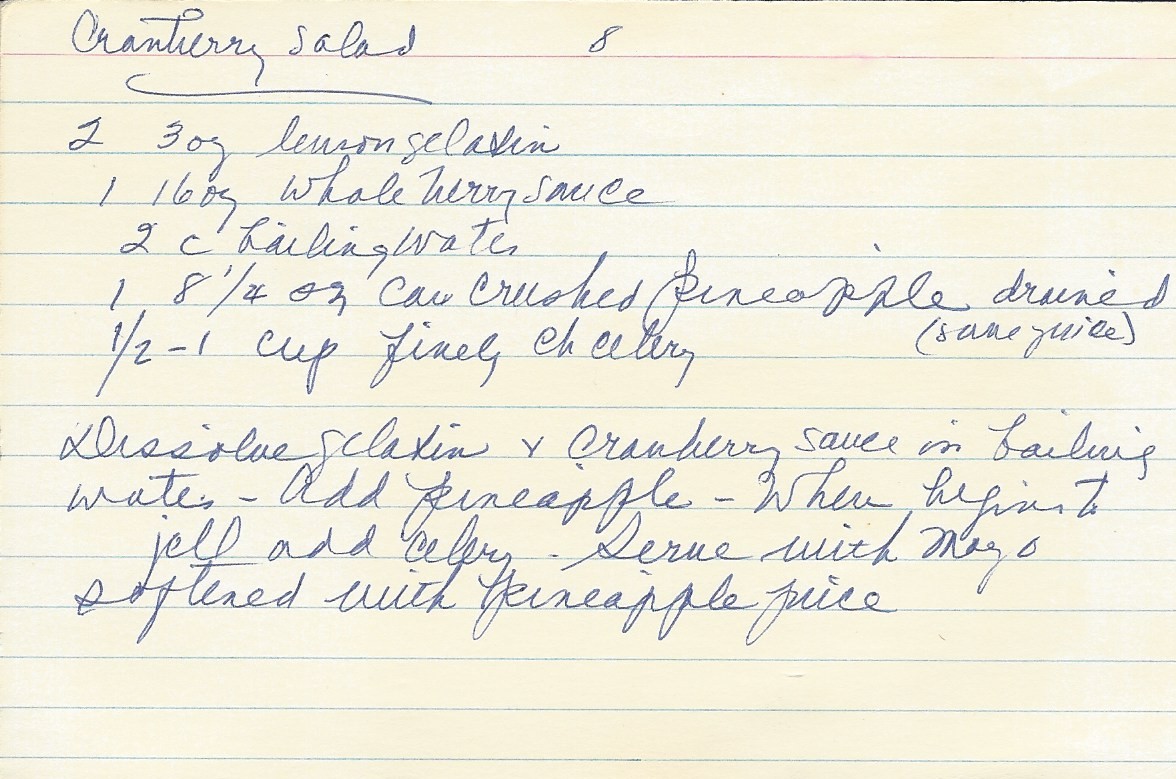 Cranberry Salad 8
2 3oz lemon gelatin
1 16oz whole berry sauce
2 c boiling water
1 8 1/4 oz can crushed pineapple drained
(save juice)
1/2 - 1 cup finely ch celery
Dissolve gelatin & cranberry sauce in boiling
water - Add pineapple - When begins to
jell add celery - Serve with Mayo
softened with pineapple juice